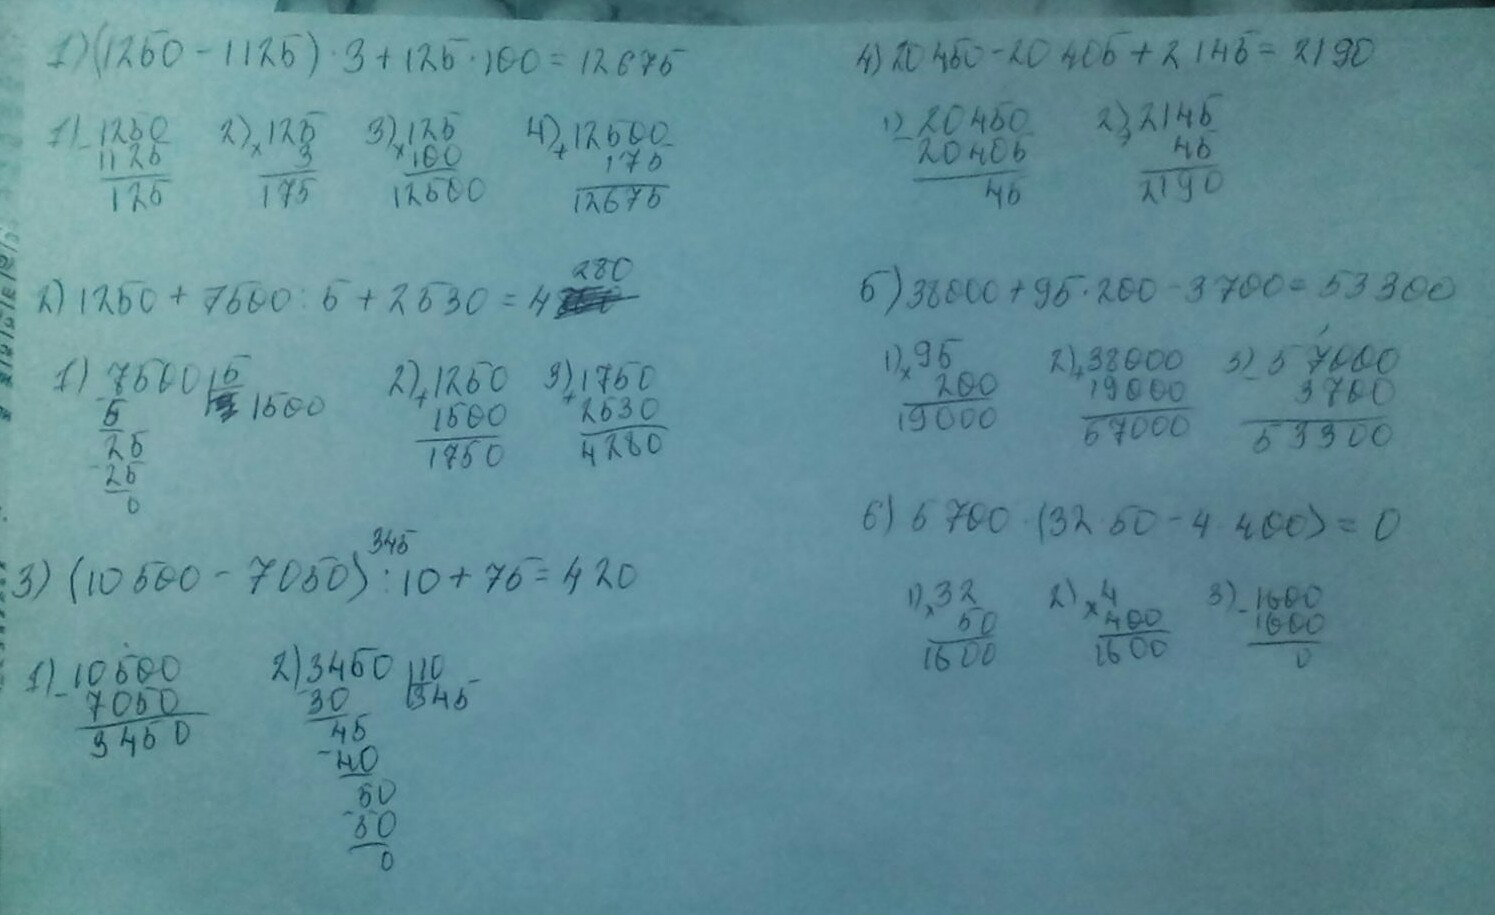 1) (1250 - 1125) · 3 + 125 · 100 = 12675
1) - 1250 2) × 125 3) × 125 4) + 12500
1125 3 100 175
125 175 12500 12675
2) 1250 + 7500 : 5 + 2530 = 4280
1) - 7500 5 2) + 1250 3) + 1750
5 1500 1500 2530
- 25 1750 4280
25
0
3) (10500 - 7050) : 10 + 75 = 420
345
1) - 10500 2) 3450 10
7050 - 30 345
3450 45
- 40
50
- 50
0
4) 20450 - 20405 + 2145 = 2190
1) - 20450 2) + 2145
20405 45
45 2190
5) 38000 + 95 · 200 - 3700 = 53300
1) × 95 2) + 38000 3) - 57000
200 19000 3700
19000 57000 53300
6) 5700 · (32 · 50 - 4 · 400) = 0
1) × 32 2) × 4 3) - 1600
50 400 1600
1600 1600 0